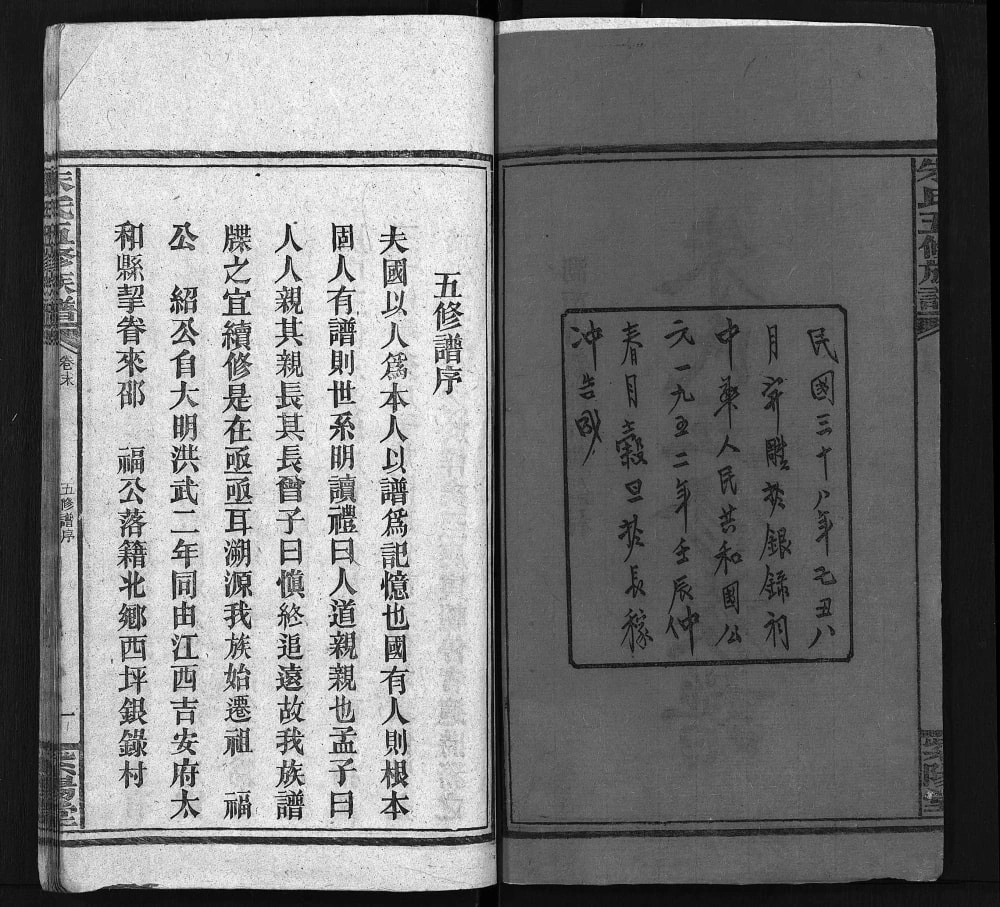 朱氏五修族譜
民國三十八年己丑八
月完雕於銀錄祠
中華人民共和國公
元一九五二年壬辰仲
春月穀旦於長穆
冲告成
五修譜序
夫國以人爲本人以譜爲記憶也國有人則根本
固人有譜則世系明讀禮曰人道親親也孟子曰
人人親其親長其長曾子曰愼終追遠故我族譜
牒之宜續修是在亟亟耳溯源我族始遷祖　福
公　紹公自大明洪武二年同由江西吉安府太
和縣挈眷來邵　福公落籍北鄉西坪銀錄村
朱氏五修族譜
卷末
五修譜序
一
紫陽堂